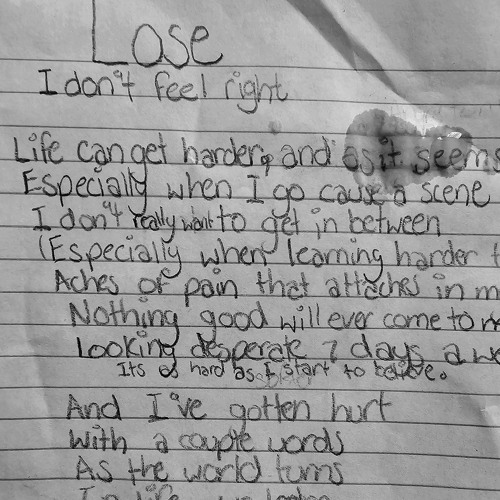 Lose
I don't feel right
Life can get harder, and as it seems
Especially when I go cause a scene
I don't really want to get in between
(Especially when learning harder
Aches of pain that attaches in
Nothing good will ever come to
Looking desperate 7 days a
Its as hard as I start to believe.
And I've gotten hurt
With a couple words
As the world turns